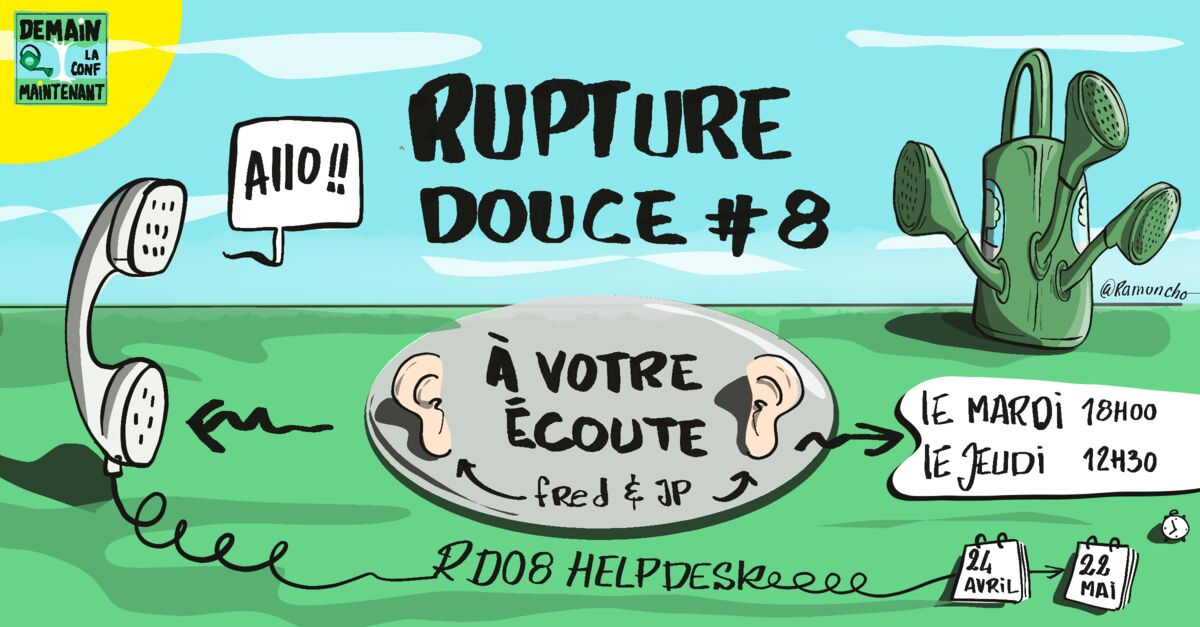 DEMAiN
LA
CONF
MAINTENANT
Allo !!
RUPTURE
DOUCE #8
@Ramuncho
À VOTRE
ÉCOUTE
fRed & JP
lE MARDi 18H00
lE JEUDi 12H30
RD08 HELPDESK
24
AVRiL
22
MAi